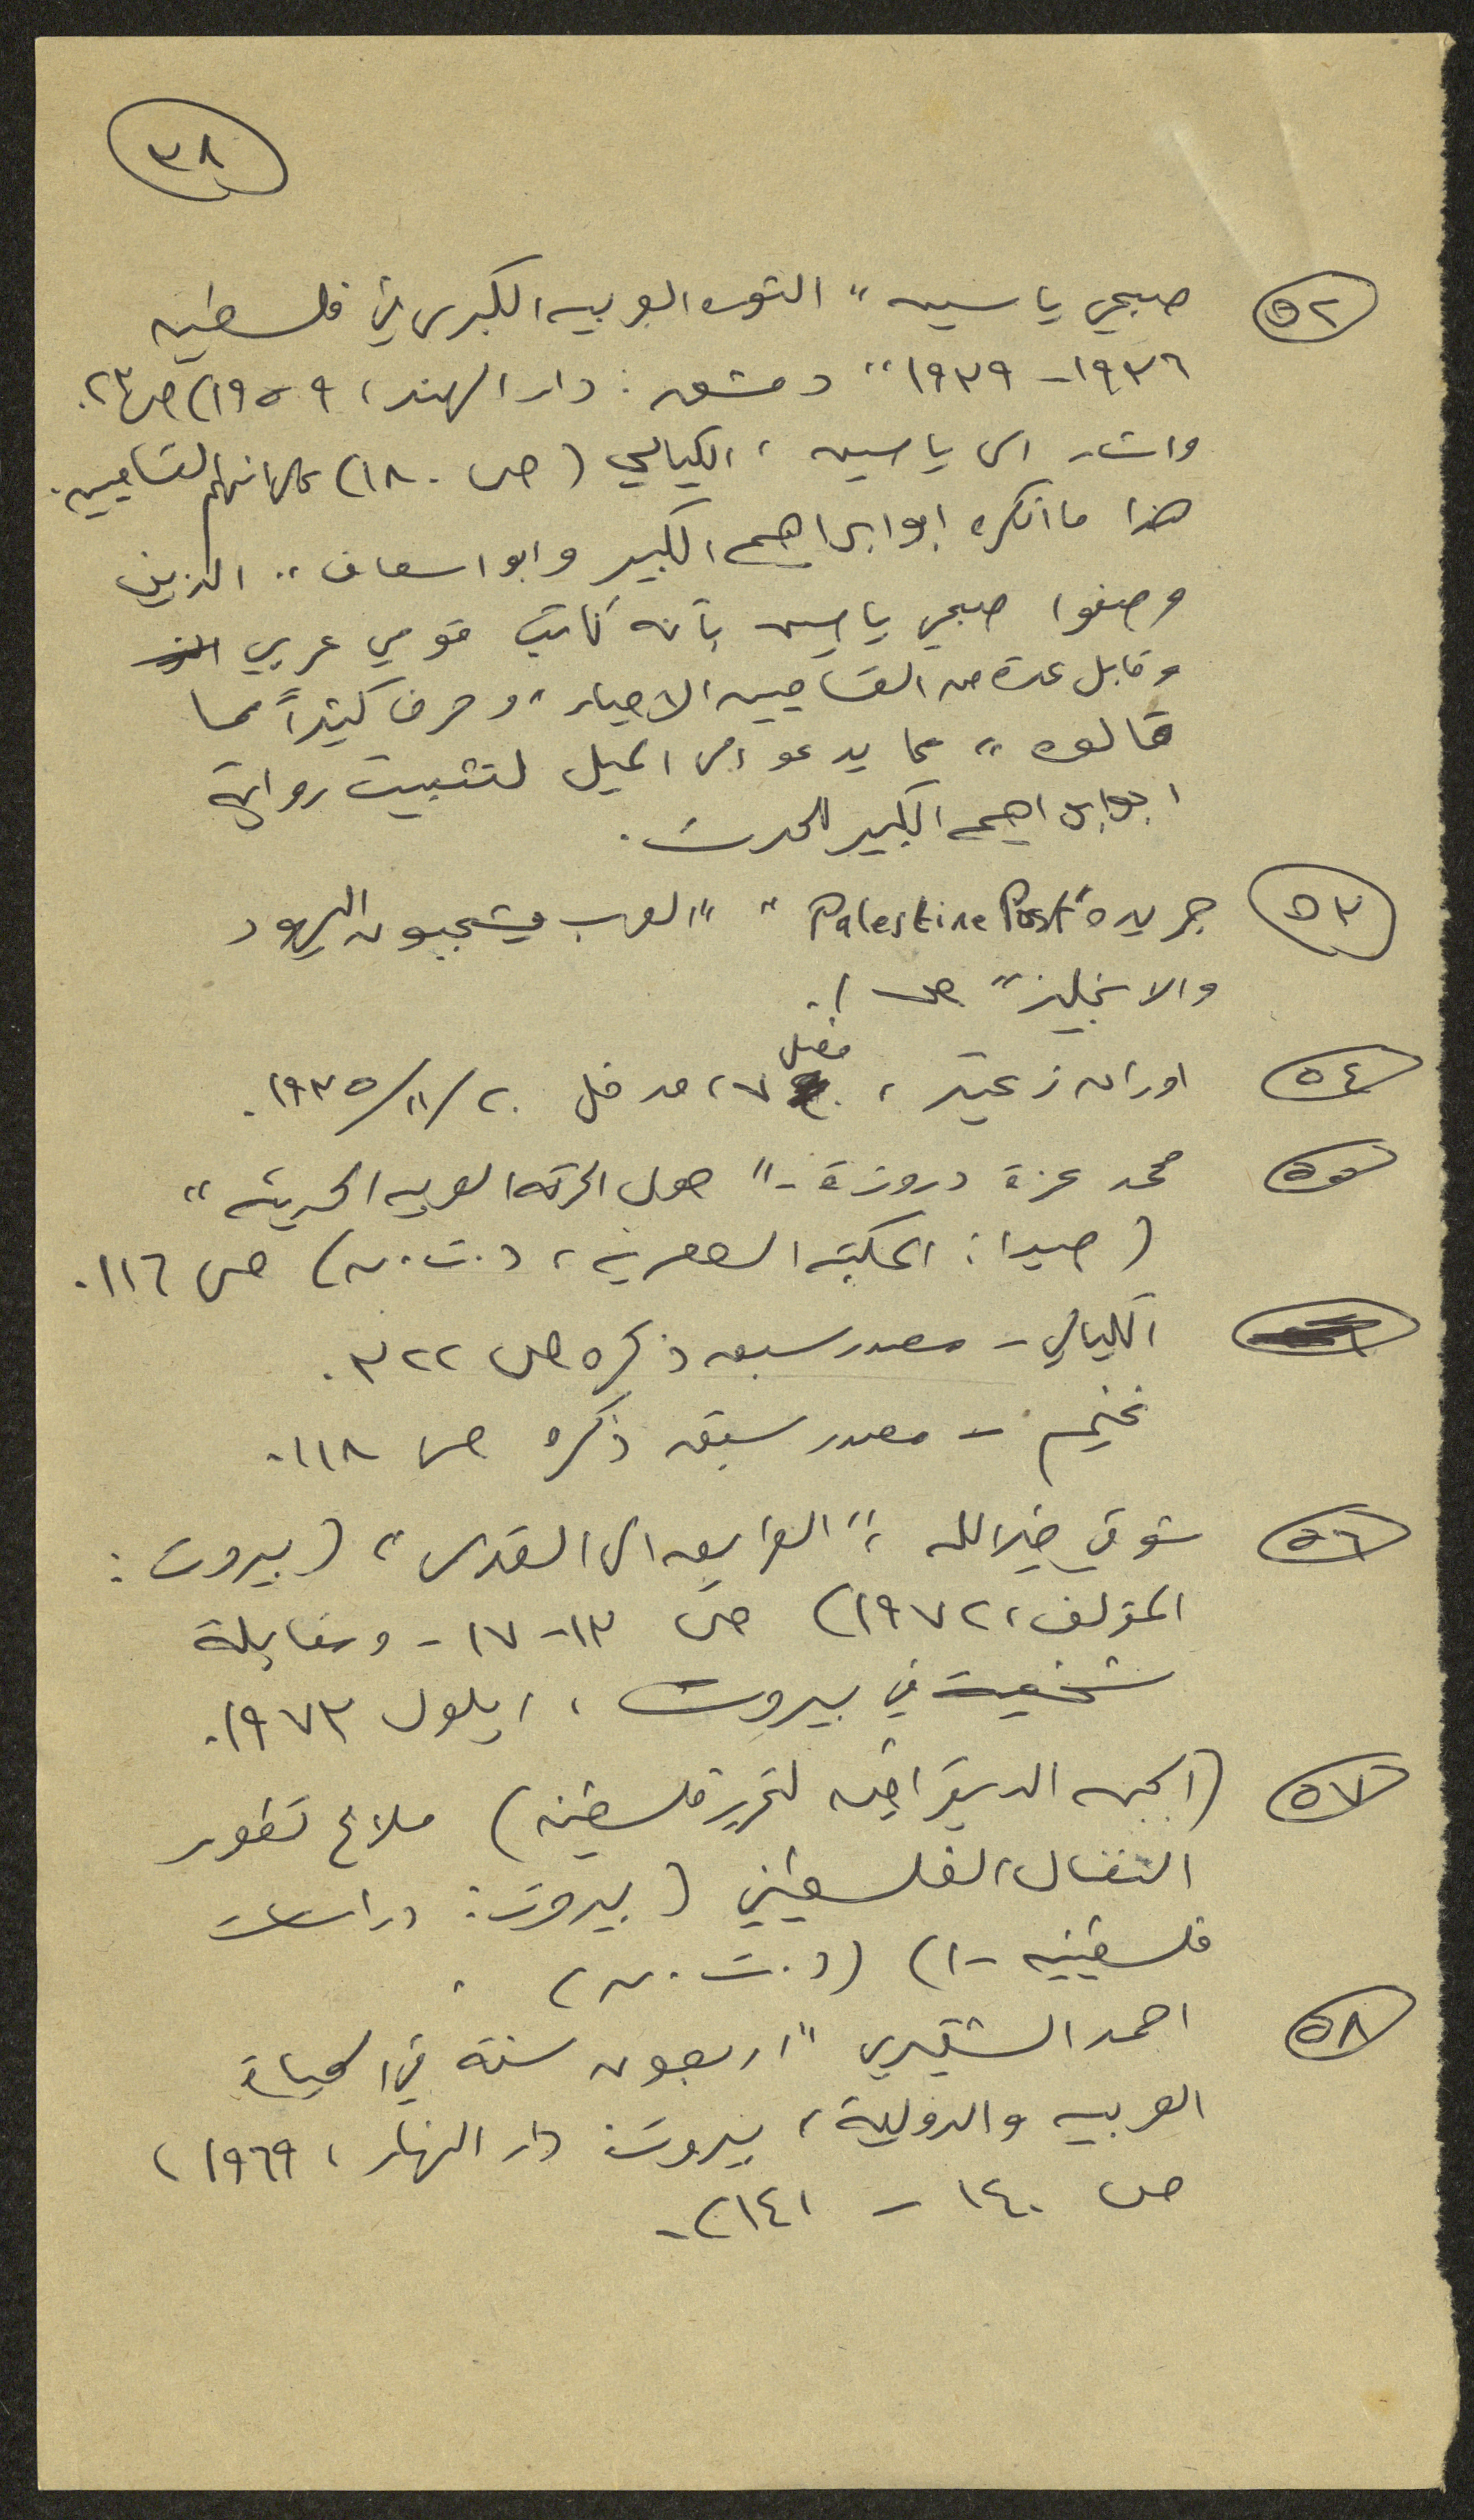 ٣٨
٥٢ صبحي ياسين " الثوره العربيه الكبرى في فلسطين
١٩٣٦ - ١٩٣٩ " دمشق : دار الهند، ١٩٥٩) ص ٢٣.
واشار الى ياسين ، الكيالي (ص ١٨٠) القساميين.
هذا ما انكره ابو ابراهيم الكبير وابو اسعاف " الذين
وصفوا صبحي ياسين بأنه كاتب قومي عربي
وقابل عدة من القساميين الاحياء " وحرف كثيراً مما
قالوه " مما يدعو الى الميل لتثبيت رواية
ابو ابراهيم الكبير للحدث .
٥٣ جريده "Palestine Post" " العرب يشجبون اليهود
والانجليز " ص ١.
٥٤ اوراق زعيتر ، ملف ٧، مدخل ٢٠/١١/١٩٣٥.
٥٥ محمد عزة دروزة - " حول الحركه العربيه الحديثه "
(صيدا : المكتبه العصريه ، د.ت.ن) ص ١١٦.
الكيالي - مصدر سبق ذكره ص ٣٢٢.
غنيم - مصدر سبق ذكره ص ١١٨.
٥٦ شوقي خيرالله ، " الطريق الى القدس " (بيروت :
المؤلف ، ١٩٧٢) ص ١٣-١٧ - ومقابلة
شخصية في بيروت ، ايلول ١٩٧٣.
٥٧ (الجبهه الديمقراطيه لتحرير فلسطين) ملامح تطور
النضال الفلسطيني (بيروت : دراسات
فلسطينيه -١) (د.ت.ن) .
٥٨ احمد الشقيري " اربعون سنة في الحياة
العربيه والدولية ، بيروت : دار النهار ، ١٩٦٩ ،
ص ١٤٠ - ١٤١